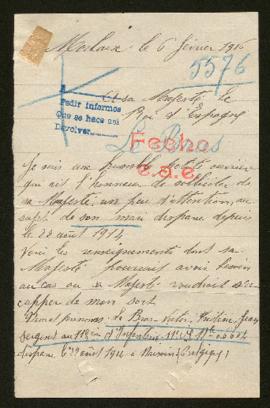 Morlaix le 6 février 1916
5576
A sa Majesté le
Roi d'Espagne
A
Pedir informes
Que se hace así
Devolver
Le Bras
Fecho
e.a.e.
Je suis une
qui ai l'honneur de solliciter de
sa Majesté un peu d'attention, au
sujet de son mari disparu depuis
le 22 août 1914
Voici les renseignements dont sa
Majesté pourrait avoir besoin
au cas où sa Majesté voudrait s'oc
cuper de mon sort
Nom et prénoms Le Bras Victor
Sergent au d'Infanterie
disparu le 22 août 1914 à (Belgique)